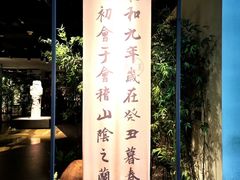 和九年歲在癸丑暮春
初會于會稽山陰之蘭